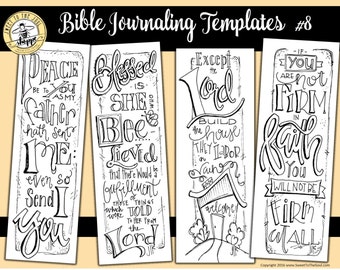 Bible Journaling Templates #8
PEACE
BE TO YOU AS MY
Father
hath sent
ME:
even so
Send I
you
Blessed
is
SHE
THAT
Bee
lieved
that there would be
fulfillment
THINGS
TOLD
TO HER FROM
the
Lord
Except
the
Lord
BUILD
the house
THEY LABOR
in
vain
welcome
IF
YOU
ARE not
FIRM
in
Faith
YOU
WILL NOT BE
Firm
at ALL
IS
Copyright 2016 www.SweetToTheSoul.com